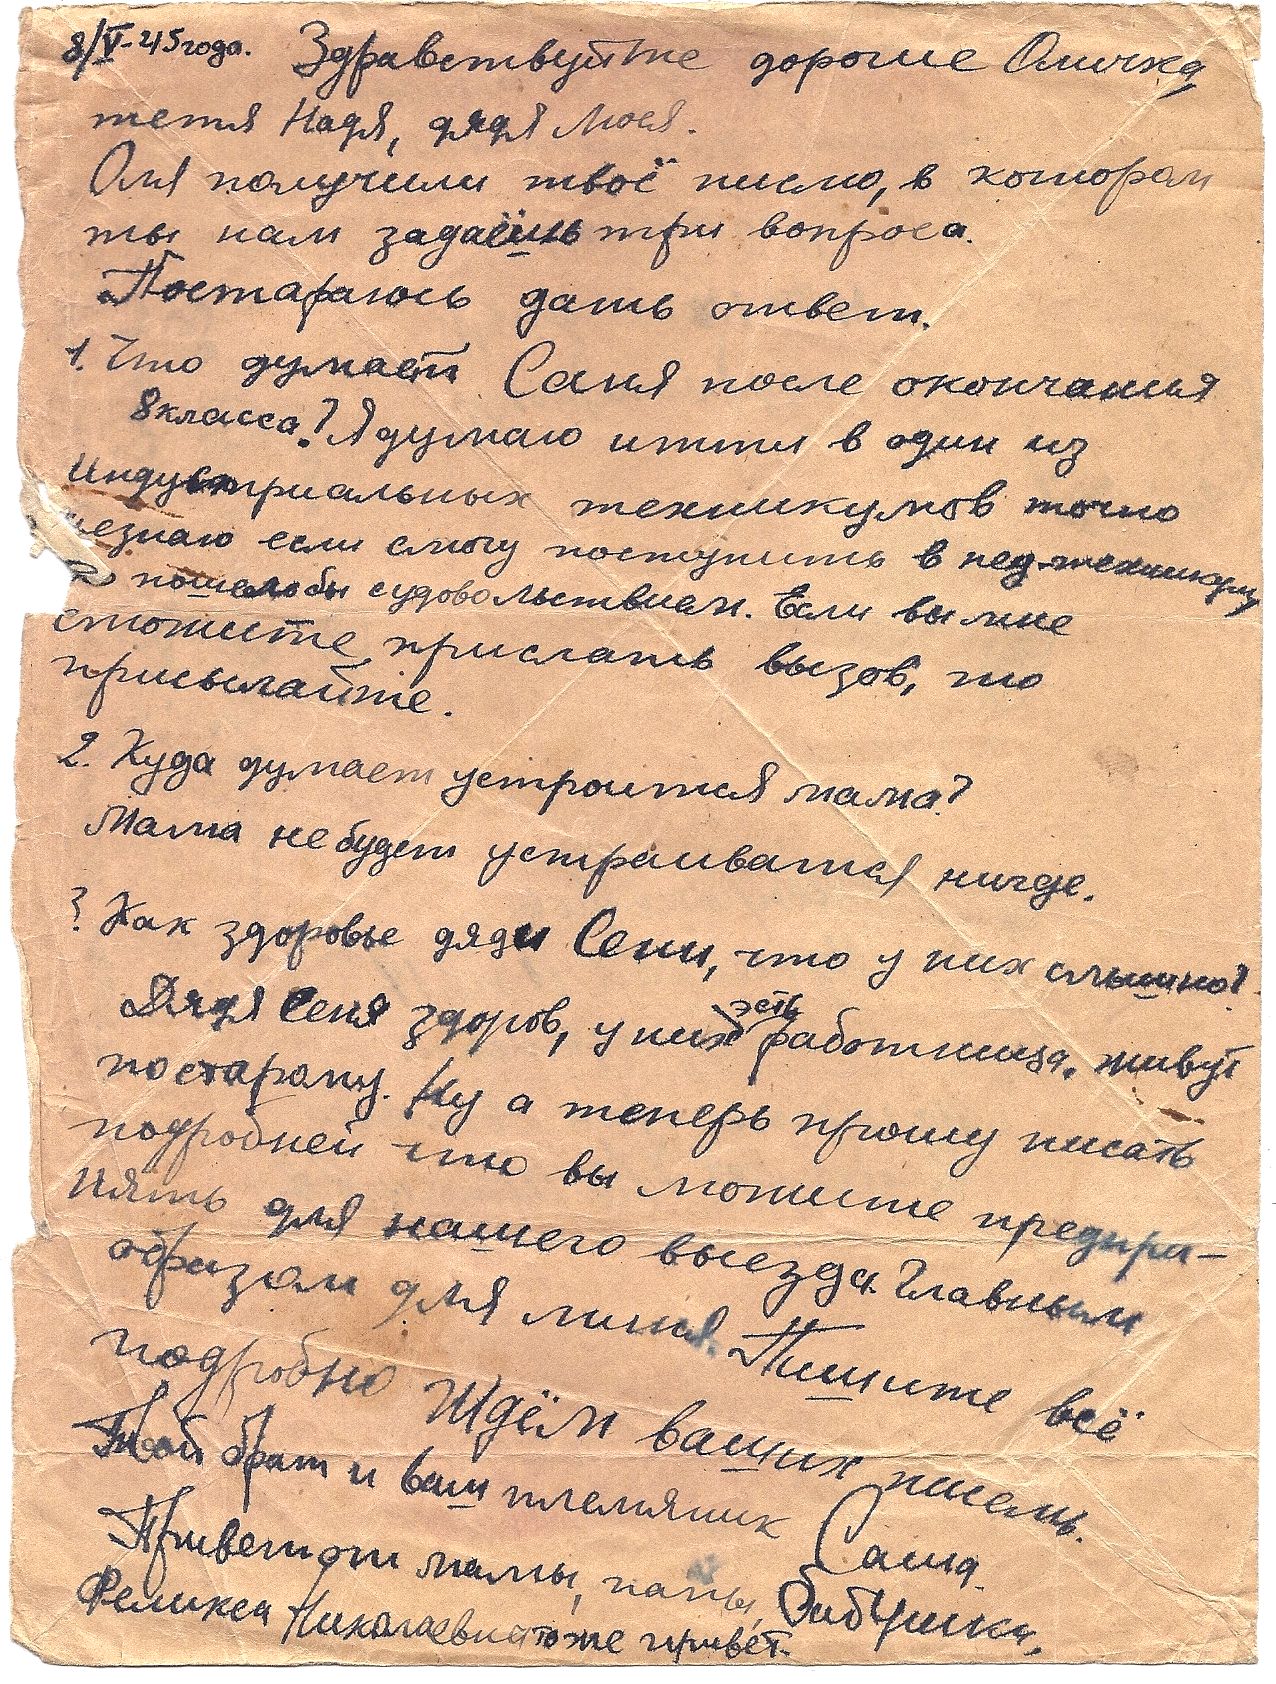 8/V-45 года. Здравствуйте дорогие Оличка
тетя Надя, дядя Мося.
Оля получили твоё писмо, в котором
ты нам задаёшь три вопроса.
Постараюсь дать ответ.
1. Что думает Саня после окончания
8 класса? Я думаю итти в один из
Индустриальных техникумов точно
незнаю если смогу поступить в пед-техникум
то пошелобы судовольствием. Если вы мне
сможите прислать вызов, то
присылайте.
2. Куда думает устроится мама?
Мама не будет устраиватся нигде.
3 Как здоровье дяди Сени, что у них слышно?
Дядя Сеня здоров, у них есть работница. живут
постарому. Ну а теперь прошу писать
подробней что вы можите предпри-
нять для нашего выезда. Главным
образом для миня. Пишите всё
подробно Ждём ваших писем.
Твой брат и ваш племяник Саша.
Привет от мамы, папы, Бабушки,
Феликса Николаевна тоже привет.